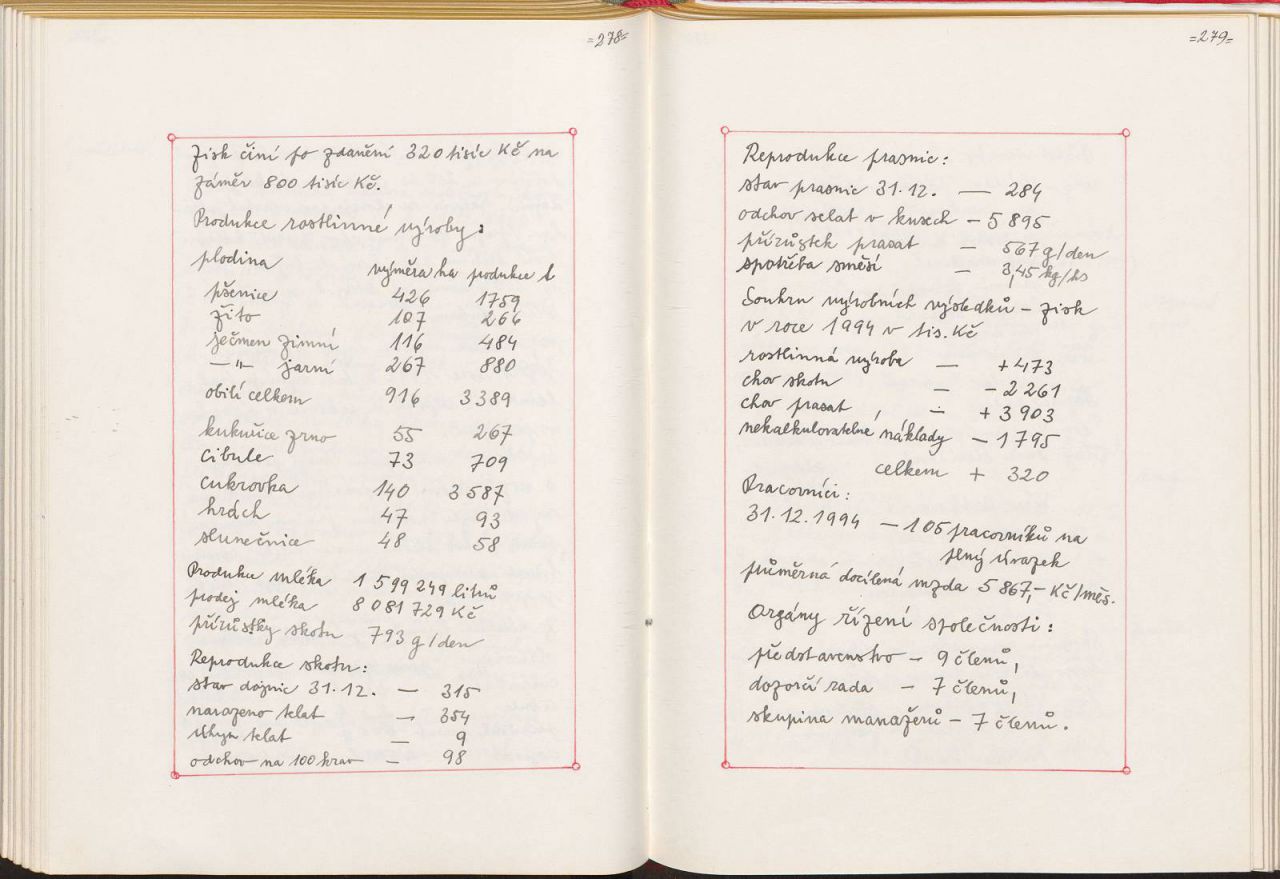 =278=
Zisk činí po zdanění 320 tisíc Kč na
záměr 800 tisíc Kč.
Produkce rostlinné výroby:
plodina výměra ha produkce t
pšenice 426 1759
žito 107 266
ječmen zimní 116 484
—"— jarní 267 880
obilí celkem 916 3389
kukuřice zrno 55 267
cibule 73 709
cukrovka 140 3587
hrách 47 93
slunečnice 48 58
Produkce mléka 1 599 249 litrů
prodej mléka 8 081 729 Kč
přírůstky skotu 793 g/den
Reprodukce skotu:
stav dojnic 31.12. — 315
narozeno telat — 354
úhyn telat — 9
odchov na 100 krav — 98
=279=
Reprodukce prasnic:
stav prasnic 31.12. — 284
odchov selat v kusech — 5 895
přírůstek prasat — 567 g/den
spotřeba směsí — 3,45 kg/ks
Souhrn výrobních výsledků – zisk
v roce 1994 v tis. Kč
rostlinná výroba — +473
chov skotu — - 2 261
chov prasat — + 3 903
nekalkulovatelné náklady — 1795
celkem + 320
Pracovníci:
31.12.1994 — 105 pracovníků na
plný úvazek
průměrná docílená mzda 5 867,- Kč/měs.
Orgány řízení společnosti:
představenstvo – 9 členů,
dozorčí rada – 7 členů,
skupina manažerů – 7 členů.